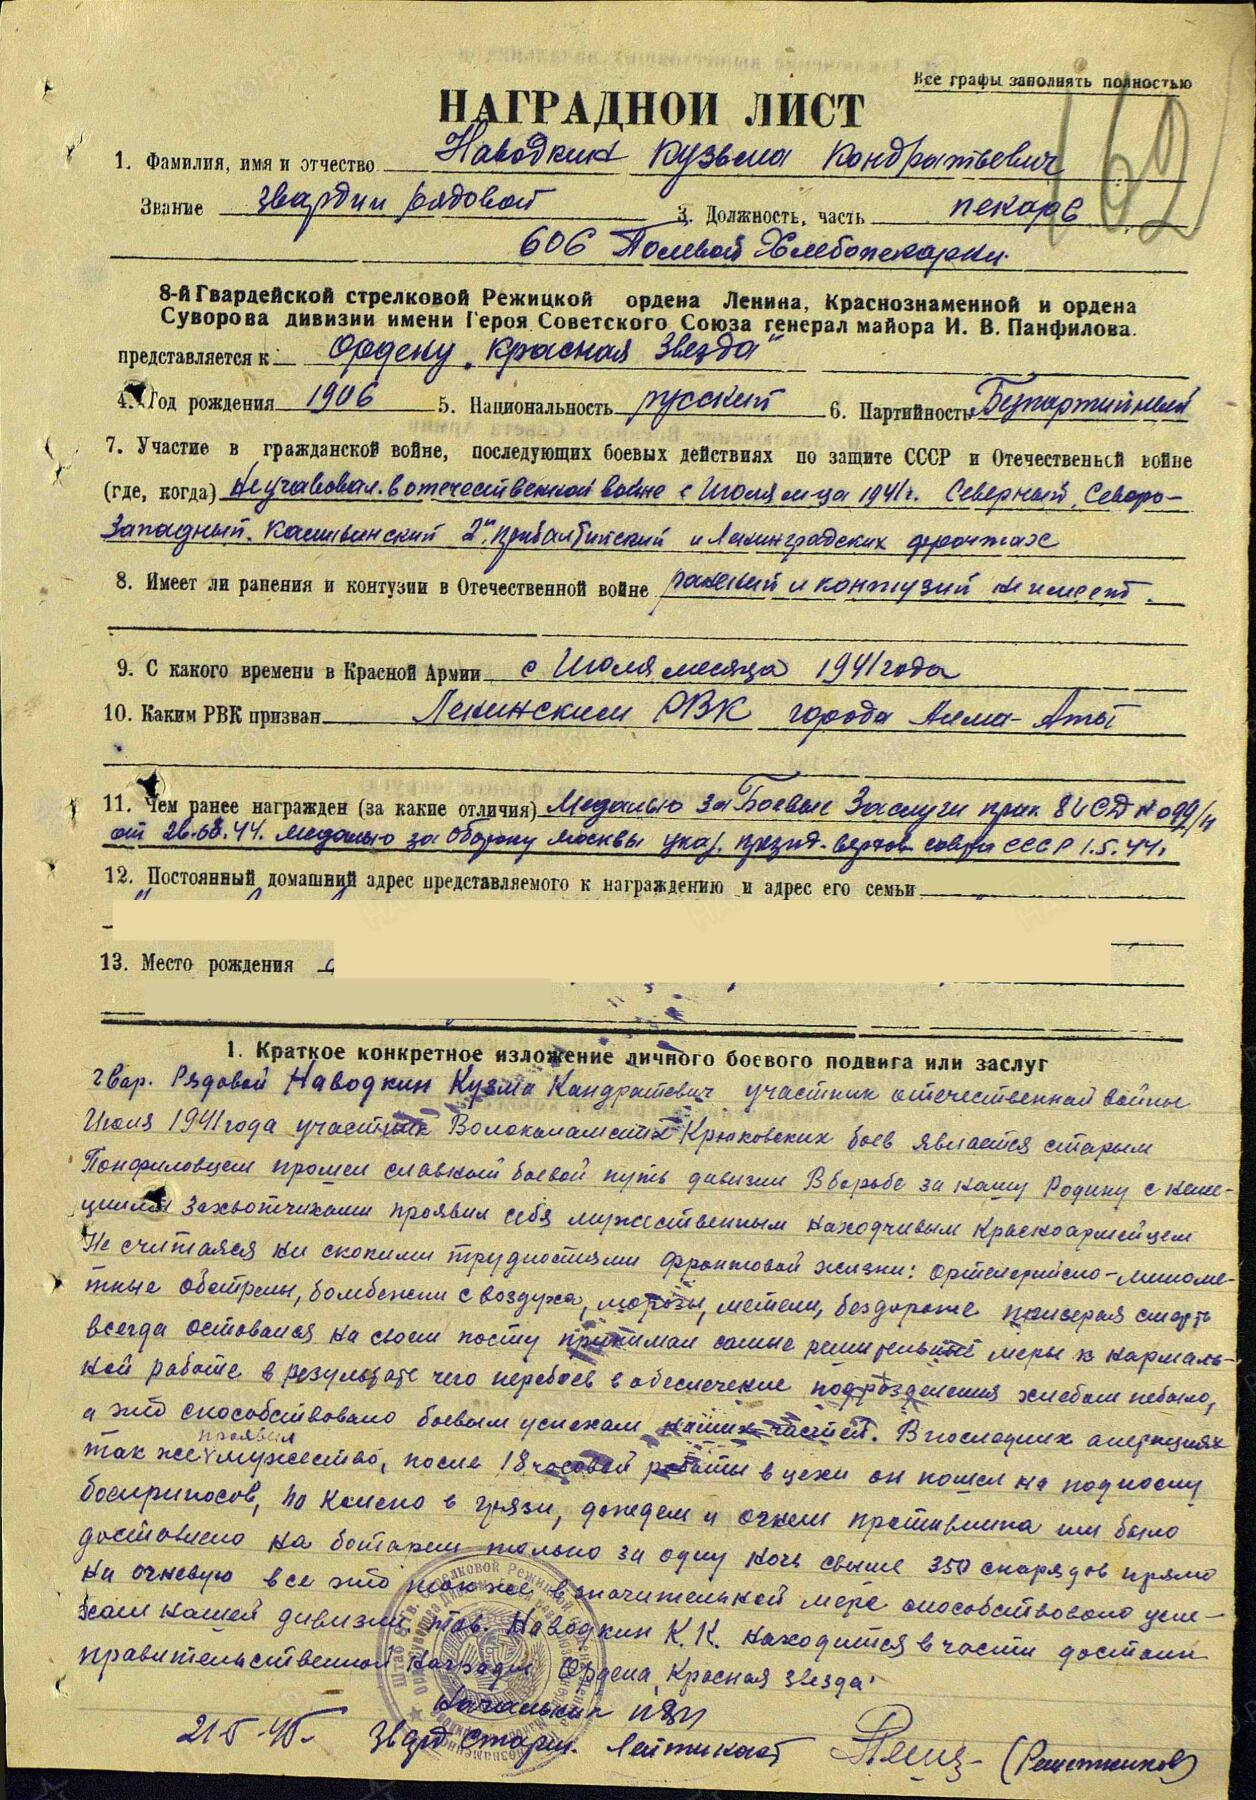 Все графы заполнять полностью
162
НАГРАДНОЙ ЛИСТ
1. Фамилия, имя и отчество Наводкин Кузьма Кондратьевич
Звание гвардии рядовой 3. Должность, часть пекарь
606 Полевой Хлебопекарни
8-й Гвардейской стрелковой Режицкой ордена Ленина, Краснознаменной и ордена
Суворова дивизии имени Героя Советского Союза генерал майора И. В. Панфилова.
представляется к Ордену „Красная Звезда"
4. Год рождения 1906 5. Национальность русский 6. Партийность Безпартийный
7. Участие в гражданской войне, последующих боевых действиях по защите СССР и Отечественной войне
(где, когда) Не учавовал. в отечественной войне с Июля м-ца 1941г. Северный, Северо-
Западный. Калининский 2й Прибалтийский и Ленинградских фронтах
8. Имеет ли ранения и контузии в Отечественной войне ранений и контузий не имеет.
9. С какого времени в Красной Армии с Июля месяца 1941 года
10. Каким РВК призван Ленинским РВК города Алма-Аты
11. Чем ранее награжден (за какие отличия) Медалью за Боевые Заслуги прик 8 СД № 099/н
от 26.08.44. медалью за Оборону Москвы указ. презид. верхов. совета СССР 1.5.44г.
12. Постоянный домашний адрес представляемого к награждению и адрес его семьи
13. Место рождения с
1. Краткое конкретное изложение личного боевого подвига или заслуг
гвар. Рядовой Наводкин Кузма Кандратевич участник отечественной войны
Июля 1941 года участник Волоколамских Крюковских боев является старым
Понфиловцем прошел славный боевой путь дивизии В борьбе за нашу Родину с неме-
цкими Захвотчиками проявил себя мужественным находчивым Красноармейцем
Не считаяся ни скокими трудностями фронтовой жизни: Артелерийско-миноме-
тные обстрелы, бомбежки с воздуха, морозы, метели, бездорожие презерая смерть
всегда оставался на своем посту принимал самые решительные меры к нармаль-
ной работе в результате чего перебоев в обеспечение подразделения хлебом небыло,
а это способствовало боевым успехам наших частей. В последних операциях
так же проявил мужество, после 18 часовой работы в цехи он пошел на подноску
боеприпасов, по колено в грязи, дождем и огнем противника им было
доставлено на батареи только за одну ночь свыше 350 снарядов прямо
на огневую все это также в значительной мере способствовало успе-
хам нашей дивизии. тов. Наводкин К.К. находится в части достоин
правительственной награды Ордена „Красная звезда"
Начальник ПХП
21-5-45г. Гвард Старш. Лейтинант (Решетников)